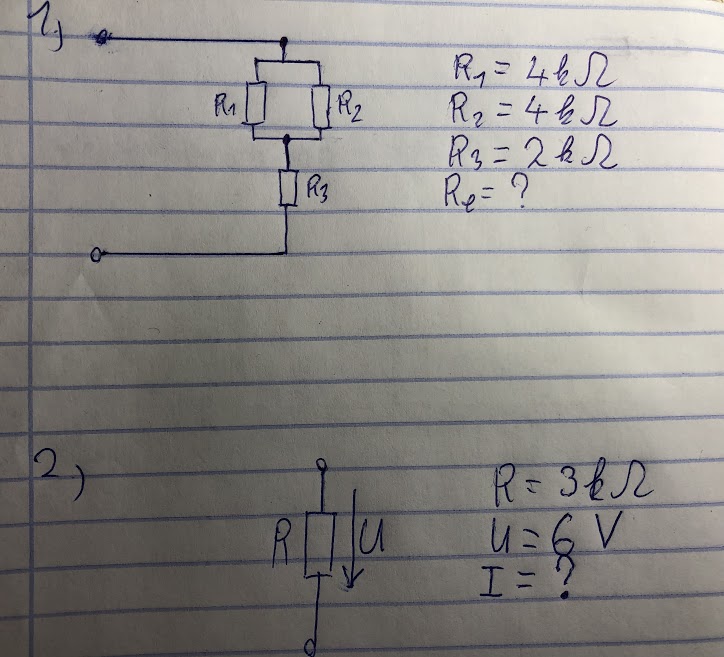 1,)
R1 R2
R3
R1 = 4kΩ
R2 = 4kΩ
R3 = 2kΩ
Re = ?
2,)
R U
R = 3kΩ
U = 6 V
I = ?